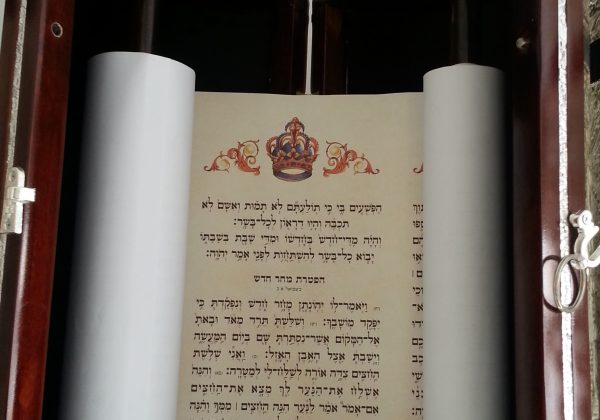 הַפֹּשְׁעִים בִּי כִּי תוֹלַעְתָּם לֹא תָמוּת וְאִשָּׁם לֹא
תִכְבֶּה וְהָיוּ דֵרָאוֹן לְכָל־בָּשָׂר׃
וְהָיָה מִדֵּי־חֹדֶשׁ בְּחָדְשׁוֹ וּמִדֵּי שַׁבָּת בְּשַׁבַּתּוֹ
יָבוֹא כָל־בָּשָׂר לְהִשְׁתַּחֲוֹת לְפָנַי אָמַר יְהוָה׃
הפטרת מחר חדש
בשמואל א כ
(יח) וַיֹּאמֶר־לוֹ יְהוֹנָתָן מָחָר חֹדֶשׁ וְנִפְקַדְתָּ כִּי
יִפָּקֵד מוֹשָׁבֶךָ׃ (יט) וְשִׁלַּשְׁתָּ תֵּרֵד מְאֹד וּבָאתָ
אֶל־הַמָּקוֹם אֲשֶׁר־נִסְתַּרְתָּ שָּׁם בְּיוֹם הַמַּעֲשֶׂה
וְיָשַׁבְתָּ אֵצֶל הָאֶבֶן הָאָזֶל׃ (כ) וַאֲנִי שְׁלֹשֶׁת
הַחִצִּים צִדָּה אוֹרֶה לְשַׁלַּח־לִי לְמַטָּרָה׃ (כא) וְהִנֵּה
אֶשְׁלַח אֶת־הַנַּעַר לֵךְ מְצָא אֶת־הַחִצִּים
אִם־אָמֹר אֹמַר לַנַּעַר הִנֵּה הַחִצִּים | מִמְּךָ וָהֵנָּה